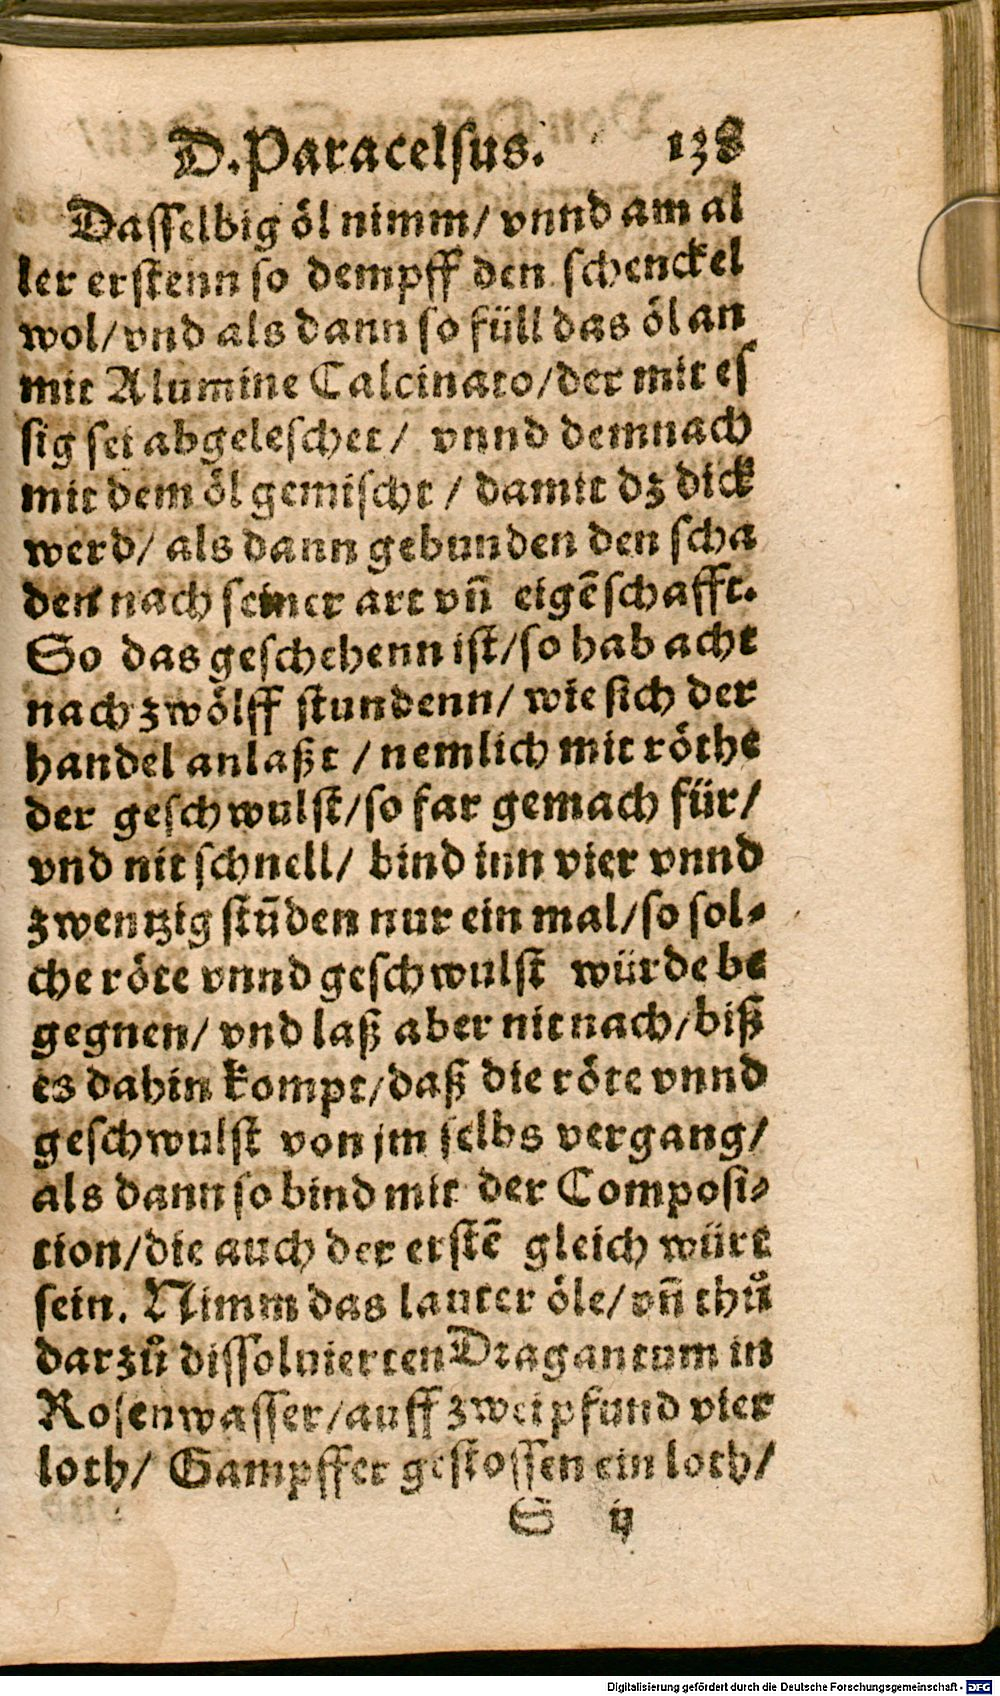 D. Paracelsus. 138
Dasselbig öl nimm/ vnnd am al
ler erstenn so dempff den schenckel
wol/ vnd als dann so füll das öl an
mit Alumine Calcinato/ der mit es
sig sei abgeleschet/ vnnd demnach
mit dem öl gemischt/ damit dz dick
werd/ als dann gebunden den scha
den nach seiner art vñ eigēschafft.
So das geschehenn ist/ so hab acht
nach zwölff stundenn/ wie sich der
handel anlaßt/ nemlich mit röthe
der geschwulst/ so far gemach für/
vnd nit schnell/ bind inn vier vnnd
zwentzig stūden nur ein mal/ so sol⸗
che röte vnnd geschwulst würde be
gegnen/ vnd laß aber nit nach/ biß
es dahin kompt/ daß die röte vnnd
geschwulst von jm selbs vergang/
als dann so bind mit der Composi⸗
tion/ die auch der erstē gleich würt
sein. Nimm das lauter öle/ vñ thů
darzů dissoluierten Dragantum in
Rosenwasser/ auff zwei pfund vier
loth/ Gampffer gestossen ein loth/
S ij
Digitalisierung gefördert durch die Deutsche Forschungsgemeinschaft - DFG